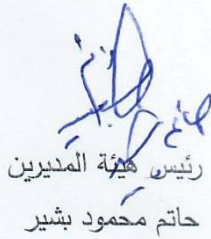 رئيس هيئة المديرين
حاتم محمود بشير